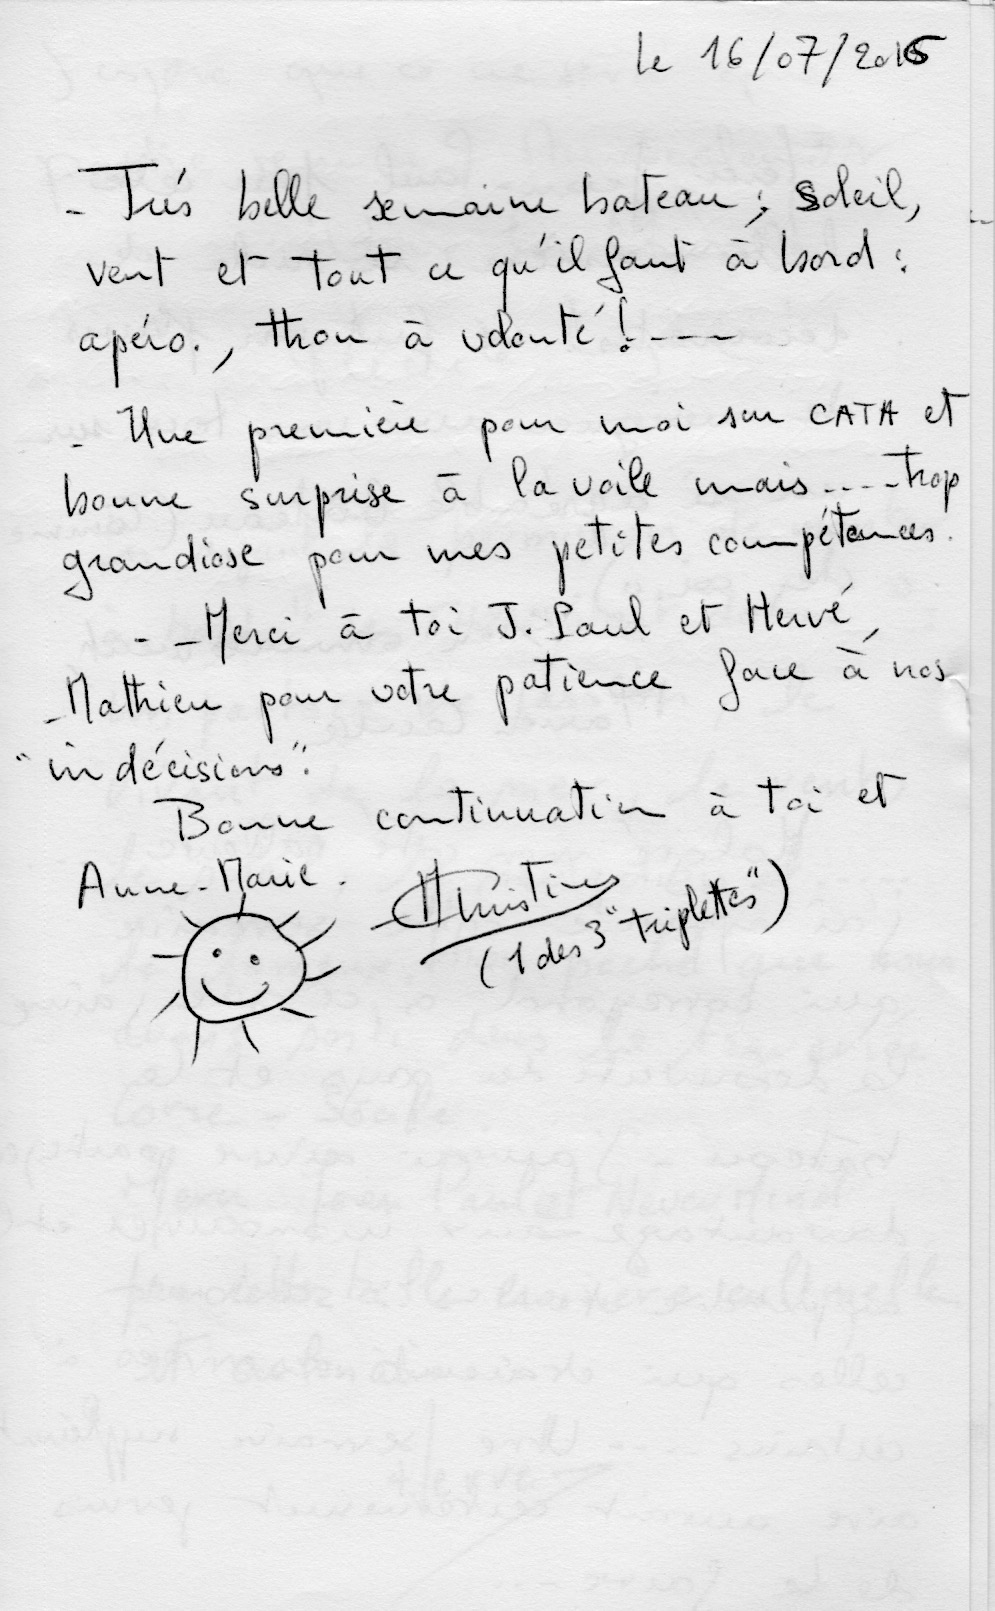 le 16/07/2016
- Très belle semaine bateau ; Soleil,
vent et tout ce qu'il faut à bord :
apéro., thon à volonté ! - - - -
- Une première pour moi sur CATA et
bonne surprise à la voile mais .... trop
grandiose pour mes petites compétences.
- - Merci à toi J. Paul et Hervé,
- Mathieu pour votre patience face à nos
"indécisions".
Bonne continuation à toi et
Anne-Marie.
Christine
(1 des 3 "triplettes")